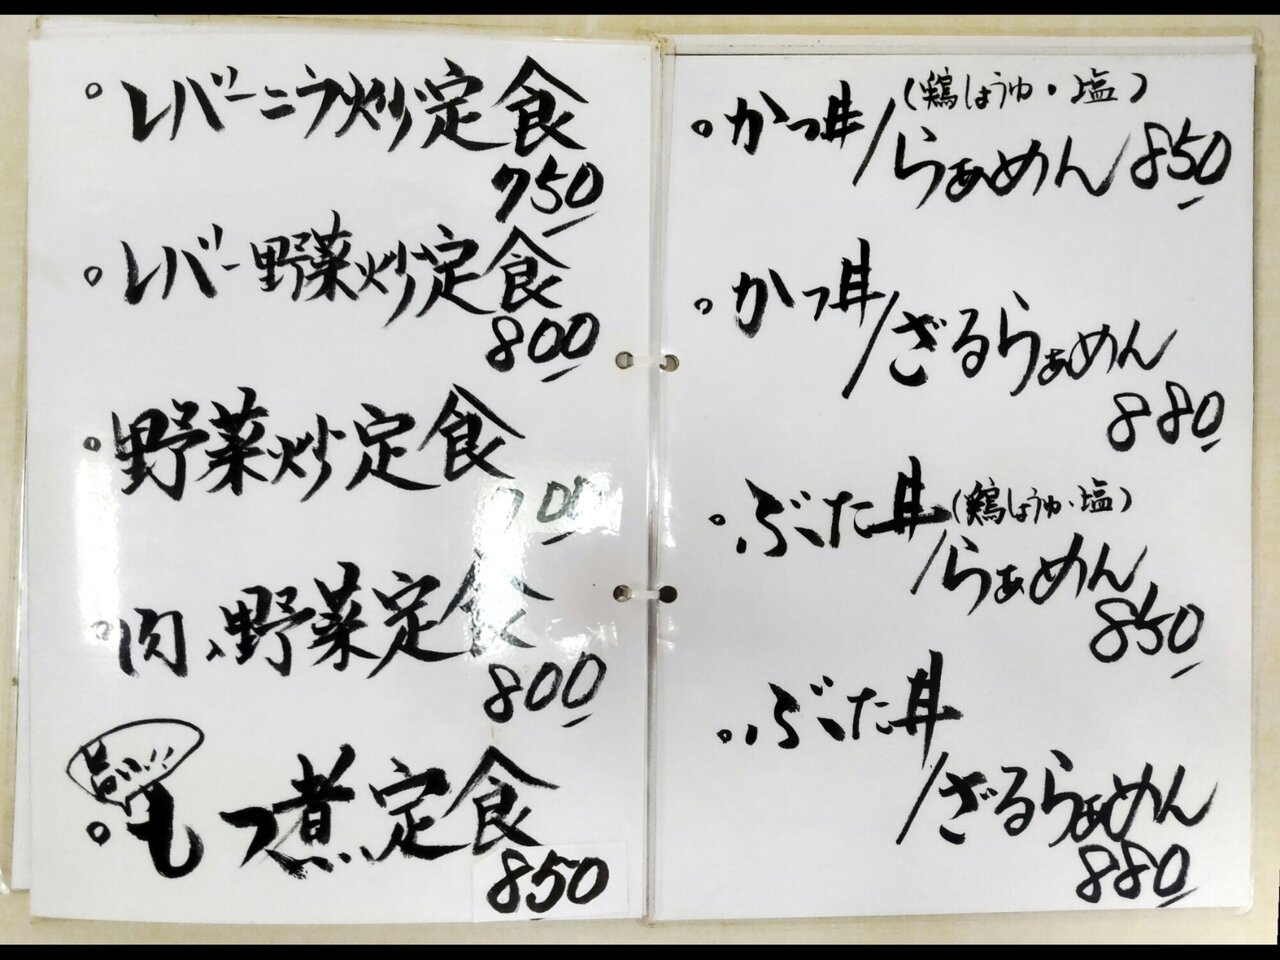 。レバーニラ炒定食
750
。レバー野菜炒定食
800
。野菜炒定食
700
。肉、野菜定食
800
旨い!!
。もつ煮定食
850
。かつ丼/(鶏しょうゆ・塩)
らぁめん 850
。かつ丼
/ざるらぁめん
880
。ぶた丼(鶏しょうゆ・塩)
/らぁめん
850
。ぶた丼
/ざるらぁめん
880